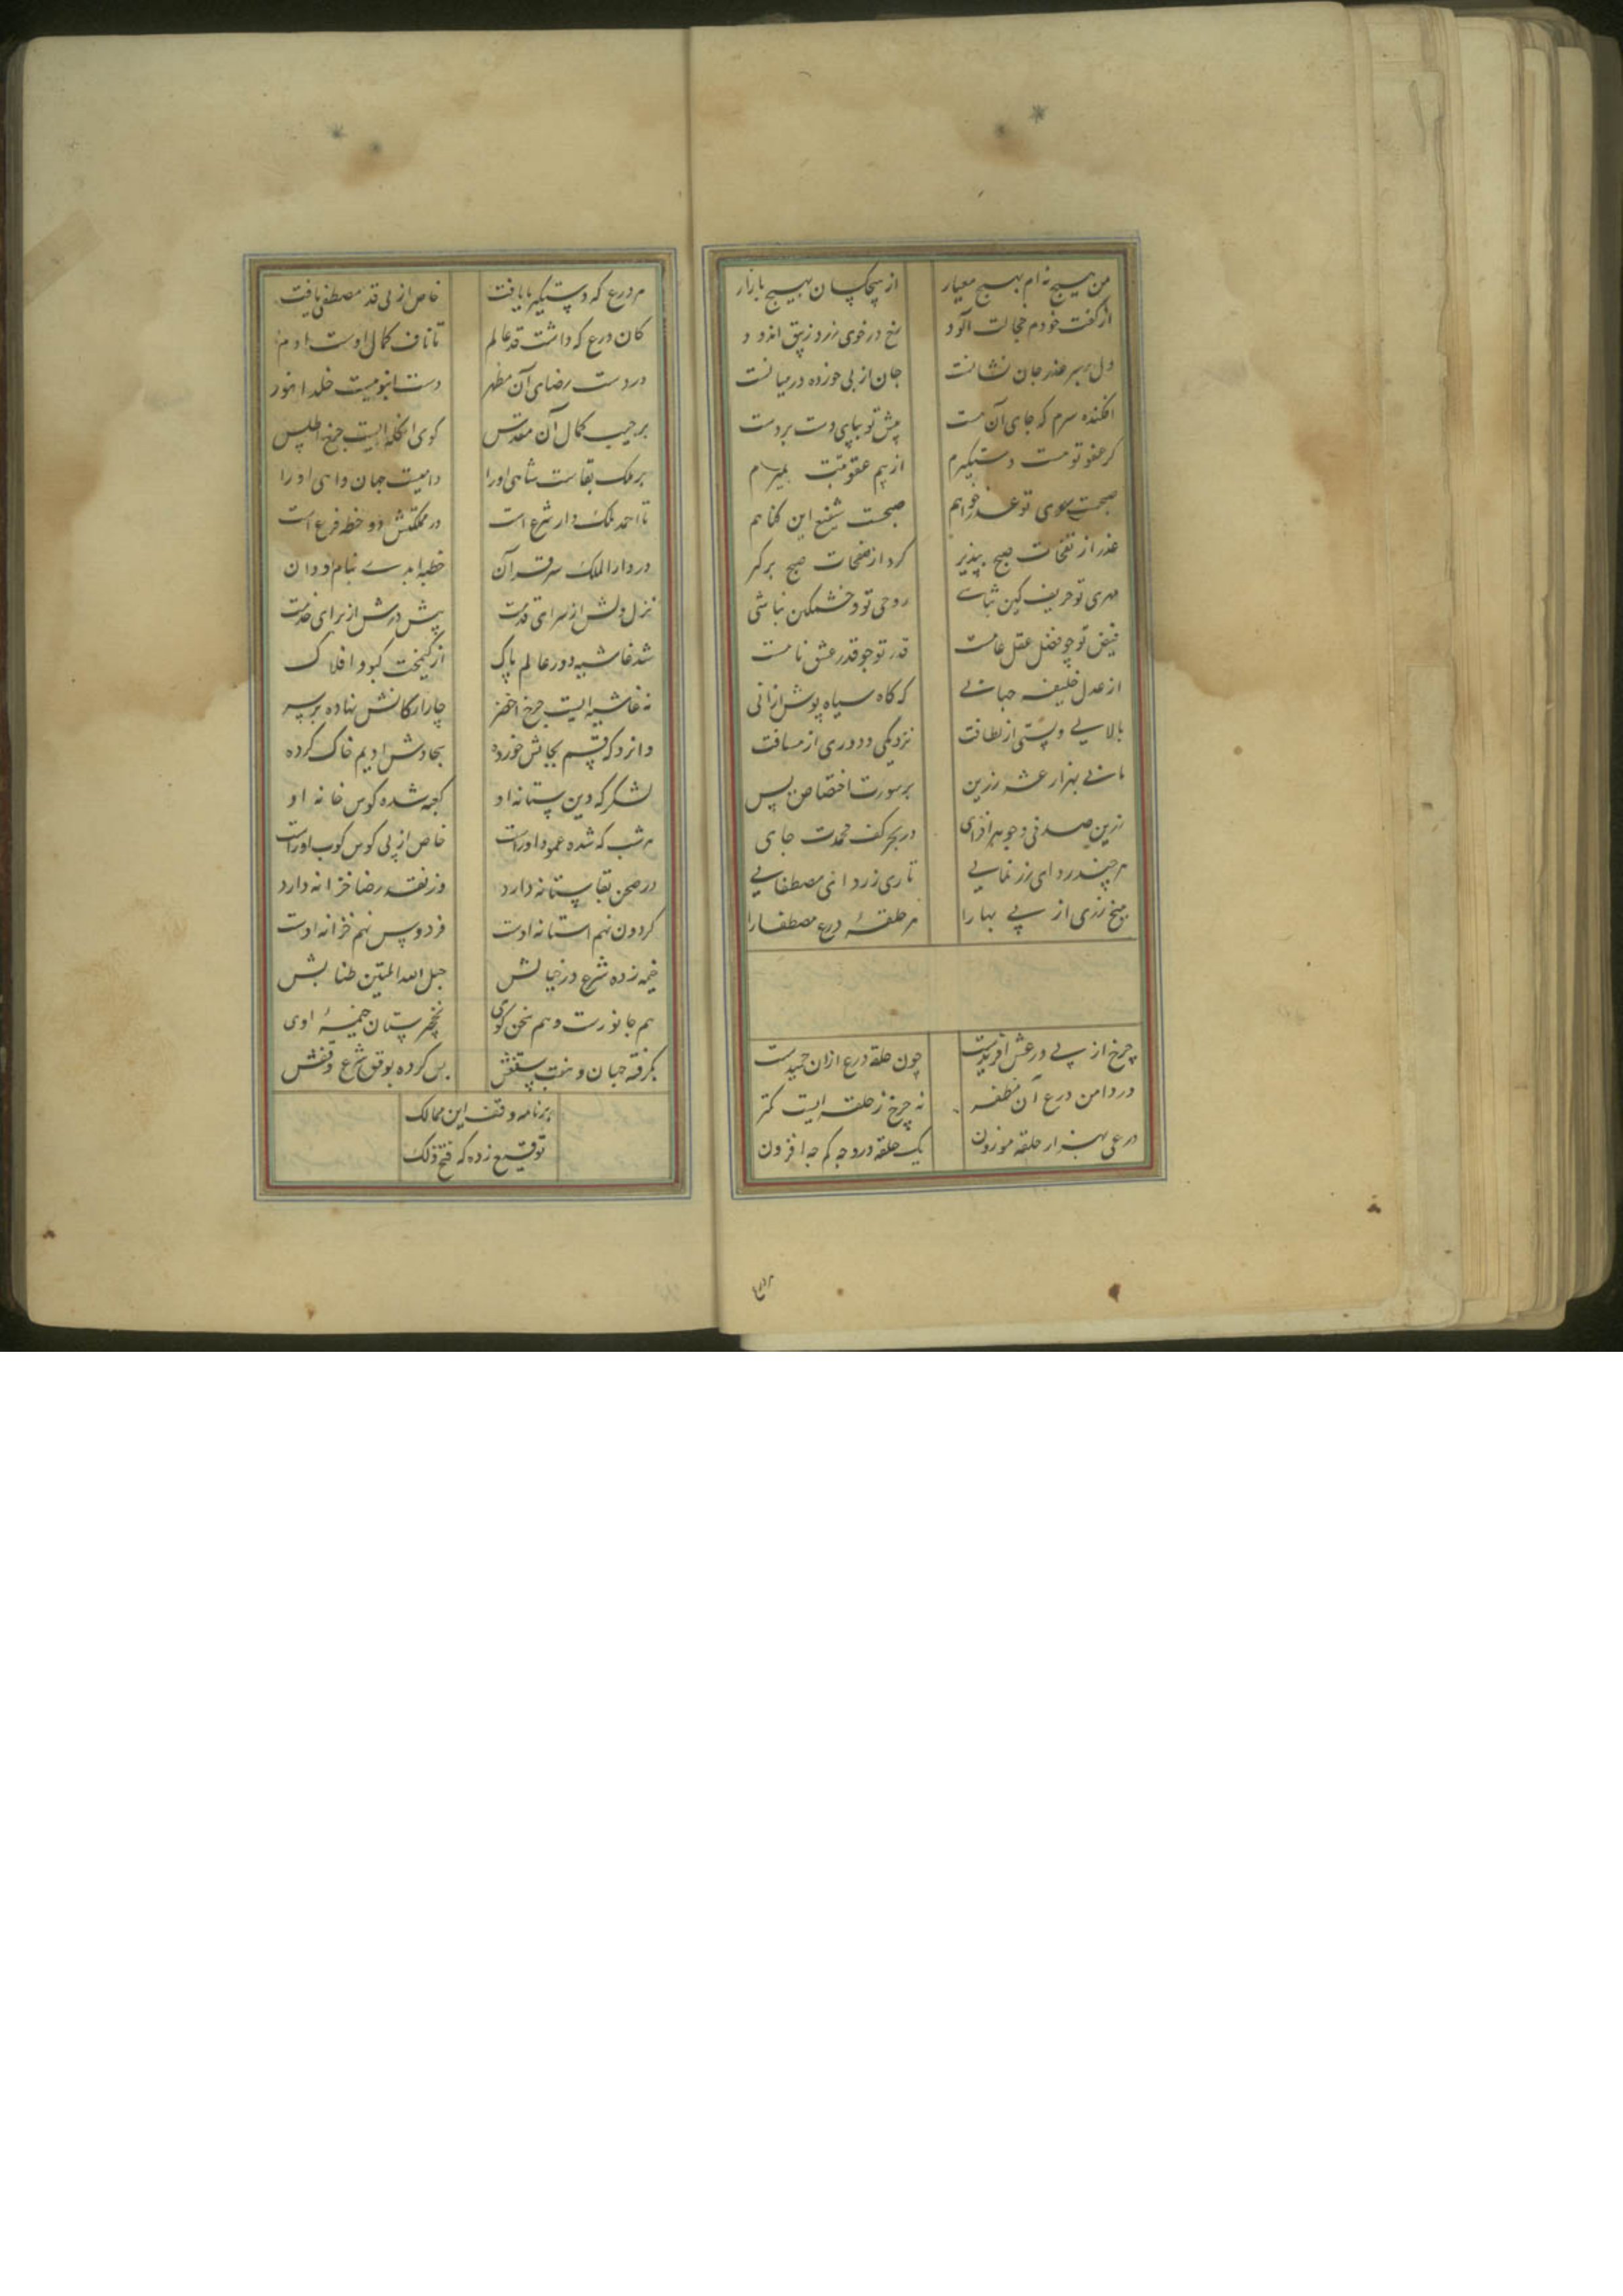 من هیچ نه ام بهیچ معیار از هیچکسان بهیچ بازار
از گفت خودم خجالت آلود رخ در خوی زرد زیبق اندود
دل بر سر عذر جان نشانست جان از پی خورده در میانست
افکنده سرم که جای آن هست پیش تو بپای دست بر دست
کر عفو تو هست دستکیرم از بیم عقوبتت نمیرم
صبحست سوی تو عذر خواهم صبحست شفیع این کناهم
عذر از نفحات صبح بپذیر کرد از صفحات صبح برکیر
مهری تو حریف کین نباشی روحی تو و خشمکین نباشی
فیض تو چو فضل عقل عامست قدر تو چو قدر عرش نامست
از عدل خلیفه جهانی که کاه سیاه پوش ازانی
بالایی و پستی از لطافت نزدیکی و دوری از مسافت
مانی بهزار عشر زرین بر سورت اختصاص یس
زرین صدفی و جوهر افزای در بحر کف محمدت جای
هر چند ردای زر نمایی تاری ز ردای مصطفایی
میخ زری از پی بها را هر حلقهٔ درع مصطفا را
چرخ از پی درعش آفریدست چون حلقه درع ازان خمیدست
در دامن درع آن مظفر نه چرخ ز حلقه ایست کمتر
درعی بهزار حلقه موزون یک حلقه درو چه کم چه افزون
هر درع
هر درع که دستکیر ما یافت خاص از پی قد مصطفی یافت
کان درع که داشت قد عالم تا ناف کمال اوست
در دست رضای آن مطهر دست انبویست خلد انور
بر جیب کمال آن مقدس کوی انکله ایست چرخ اطلس
بر ملک بقاست شاهی او را دامیست جهان
تا احمد ملک دار شرع است در مملکتش دو خطه فرع است
در دار الملک سر قرآن خطبه ابدی بنام او دان
نزل ولش از سرای قدمت پیش درش از برای خدمت
شد غاشیه دور عالم پاک از کیمخت کبود افلاک
نه غاشیه ایست چرخ اخضر چار ارکانش نهاده بر سر
وانرد که قسم بجانش خورده سجادش ادیم خاک کرده
لشکر که دین ستانه او کعبه شده کوس خانه او
هر شب که شده عمود اوراست خاص از پی کوس کوب اوراست
در صحن بقا ستانه دارد وز نقد رضا خزانه دارد
کردون نهم استانه اوست فردوس نهم خزانه اوست
خیمه زده شرع در جنابش حبل الله المتین طنابش
هم جانورست و هم سخن کوی پستان خیمهٔ اوی
بکرفته جهان پس کرده بوقف شرع وقفش
بر نامه وقف این ممالک
توقیع زده که فتح ذلک